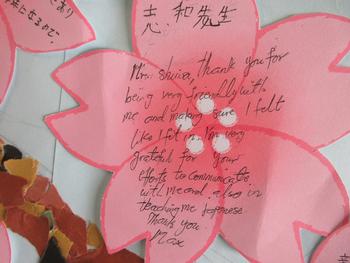 志和先生
Mrs. Shiwa, thank you for
being very friendly with
me and making sure I felt
like I fit in. I'm very
grateful for your
efforts to communicate
with me and also in
teaching me Japanese.
Thank you.
Max